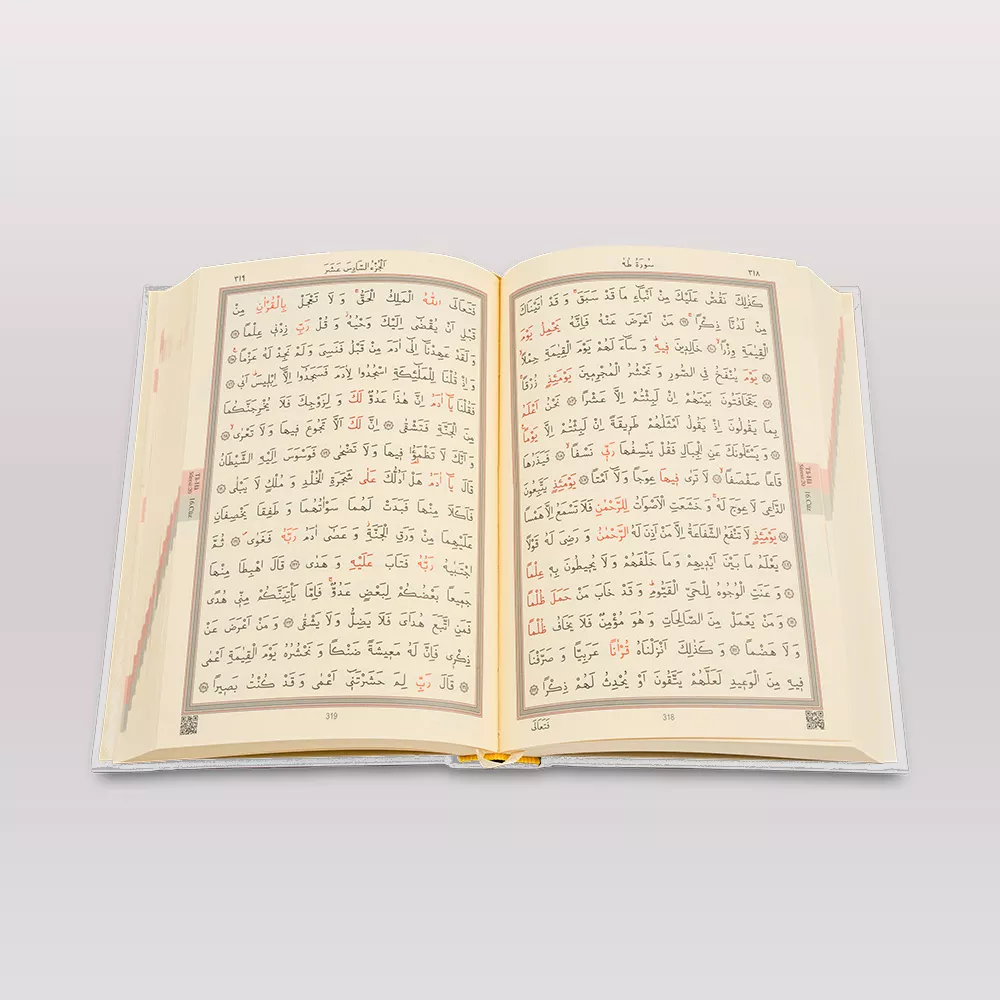 سُورَةُ طٰهٰ ٣١٨
كَذٰلِكَ نَقُصُّ عَلَيْكَ مِنْ اَنْبَٓاءِ مَا قَدْ سَبَقَۚ وَ قَدْ اٰتَيْنَاكَ
مِنْ لَدُنَّا ذِكْرًاۚ ۞ مَنْ اَعْرَضَ عَنْهُ فَاِنَّهُ يَحْمِلُ يَوْمَ
الْقِيٰمَةِ وِزْرًاۙ ۞ خَالِدِينَ فِيهِۜ وَ سَٓاءَ لَهُمْ يَوْمَ الْقِيٰمَةِ حِمْلًاۙ
۞ يَوْمَ يُنْفَخُ فِي الصُّورِ وَ نَحْشُرُ الْمُجْرِمِينَ يَوْمَئِذٍ زُرْقًاۚ
۞ يَتَخَافَتُونَ بَيْنَهُمْ اِنْ لَبِثْتُمْ اِلَّا عَشْرًا ۞ نَحْنُ اَعْلَمُ
بِمَا يَقُولُونَ اِذْ يَقُولُ اَمْثَلُهُمْ طَرِيقَةً اِنْ لَبِثْتُمْ اِلَّا يَوْمًا۟
۞ وَ يَسْـَٔلُونَكَ عَنِ الْجِبَالِ فَقُلْ يَنْسِفُهَا رَبِّي نَسْفًاۙ ۞ فَيَذَرُهَا
قَاعًا صَفْصَفًاۙ ۞ لَا تَرٰى فِيهَا عِوَجًا وَ لَٓا اَمْتًاۜ ۞ يَوْمَئِذٍ يَتَّبِعُونَ
الدَّاعِيَ لَا عِوَجَ لَهُۚ وَ خَشَعَتِ الْاَصْوَاتُ لِلرَّحْمٰنِ فَلَا تَسْمَعُ اِلَّا هَمْسًا
۞ يَوْمَئِذٍ لَا تَنْفَعُ الشَّفَاعَةُ اِلَّا مَنْ اَذِنَ لَهُ الرَّحْمٰنُ وَ رَضِيَ لَهُ قَوْلًا
۞ يَعْلَمُ مَا بَيْنَ اَيْدِيهِمْ وَ مَا خَلْفَهُمْ وَ لَا يُحِيطُونَ بِهِ عِلْمًا
۞ وَ عَنَتِ الْوُجُوهُ لِلْحَيِّ الْقَيُّومِۜ وَ قَدْ خَابَ مَنْ حَمَلَ ظُلْمًا
۞ وَ مَنْ يَعْمَلْ مِنَ الصَّالِحَاتِ وَ هُوَ مُؤْمِنٌ فَلَا يَخَافُ ظُلْمًا
وَ لَا هَضْمًا ۞ وَ كَذٰلِكَ اَنْزَلْنَاهُ قُرْاٰنًا عَرَبِيًّا وَ صَرَّفْنَا
فِيهِ مِنَ الْوَعِيدِ لَعَلَّهُمْ يَتَّقُونَ اَوْ يُحْدِثُ لَهُمْ ذِكْرًا ۞
318
فَتَعَالَى
Tâ-Hâ
Sûresi:20
16.Cüz
الْجُزْءُ السَّادِسَ عَشَرَ ٣١٩
فَتَعَالَى اللّٰهُ الْمَلِكُ الْحَقُّۚ وَ لَا تَعْجَلْ بِالْقُرْاٰنِ مِنْ
قَبْلِ اَنْ يُقْضٰٓى اِلَيْكَ وَحْيُهُۘ وَ قُلْ رَبِّ زِدْنِي عِلْمًا ۞
وَ لَقَدْ عَهِدْنَٓا اِلٰٓى اٰدَمَ مِنْ قَبْلُ فَنَسِيَ وَ لَمْ نَجِدْ لَهُ عَزْمًا۟ ۞
وَ اِذْ قُلْنَا لِلْمَلٰٓئِكَةِ اسْجُدُوا لِاٰدَمَ فَسَجَدُٓوا اِلَّٓا اِبْلِيسَۜ اَبٰى ۞
فَقُلْنَا يَٓا اٰدَمُ اِنَّ هٰذَا عَدُوٌّ لَكَ وَ لِزَوْجِكَ فَلَا يُخْرِجَنَّكُمَا
مِنَ الْجَنَّةِ فَتَشْقٰى ۞ اِنَّ لَكَ اَلَّا تَجُوعَ فِيهَا وَ لَا تَعْرٰىۙ ۞
وَ اَنَّكَ لَا تَظْمَؤُ۬ا فِيهَا وَ لَا تَضْحٰى ۞ فَوَسْوَسَ اِلَيْهِ الشَّيْطَانُ
قَالَ يَٓا اٰدَمُ هَلْ اَدُلُّكَ عَلٰى شَجَرَةِ الْخُلْدِ وَ مُلْكٍ لَا يَبْلٰى ۞
فَاَكَلَا مِنْهَا فَبَدَتْ لَهُمَا سَوْاٰتُهُمَا وَ طَفِقَا يَخْصِفَانِ
عَلَيْهِمَا مِنْ وَرَقِ الْجَنَّةِۘ وَ عَصٰٓى اٰدَمُ رَبَّهُ فَغَوٰىۖ ۞ ثُمَّ
اجْتَبٰيهُ رَبُّهُ فَتَابَ عَلَيْهِ وَ هَدٰى ۞ قَالَ اهْبِطَا مِنْهَا
جَمِيعًا بَعْضُكُمْ لِبَعْضٍ عَدُوٌّۚ فَاِمَّا يَأْتِيَنَّكُمْ مِنِّي هُدًى
فَمَنِ اتَّبَعَ هُدَايَ فَلَا يَضِلُّ وَ لَا يَشْقٰى ۞ وَ مَنْ اَعْرَضَ عَنْ
ذِكْرِي فَاِنَّ لَهُ مَعِيشَةً ضَنْكًا وَ نَحْشُرُهُ يَوْمَ الْقِيٰمَةِ اَعْمٰى
۞ قَالَ رَبِّ لِمَ حَشَرْتَنِٓي اَعْمٰى وَ قَدْ كُنْتُ بَصِيرًا ۞
319
Tâ-Hâ
Sûresi:20
16.Cüz